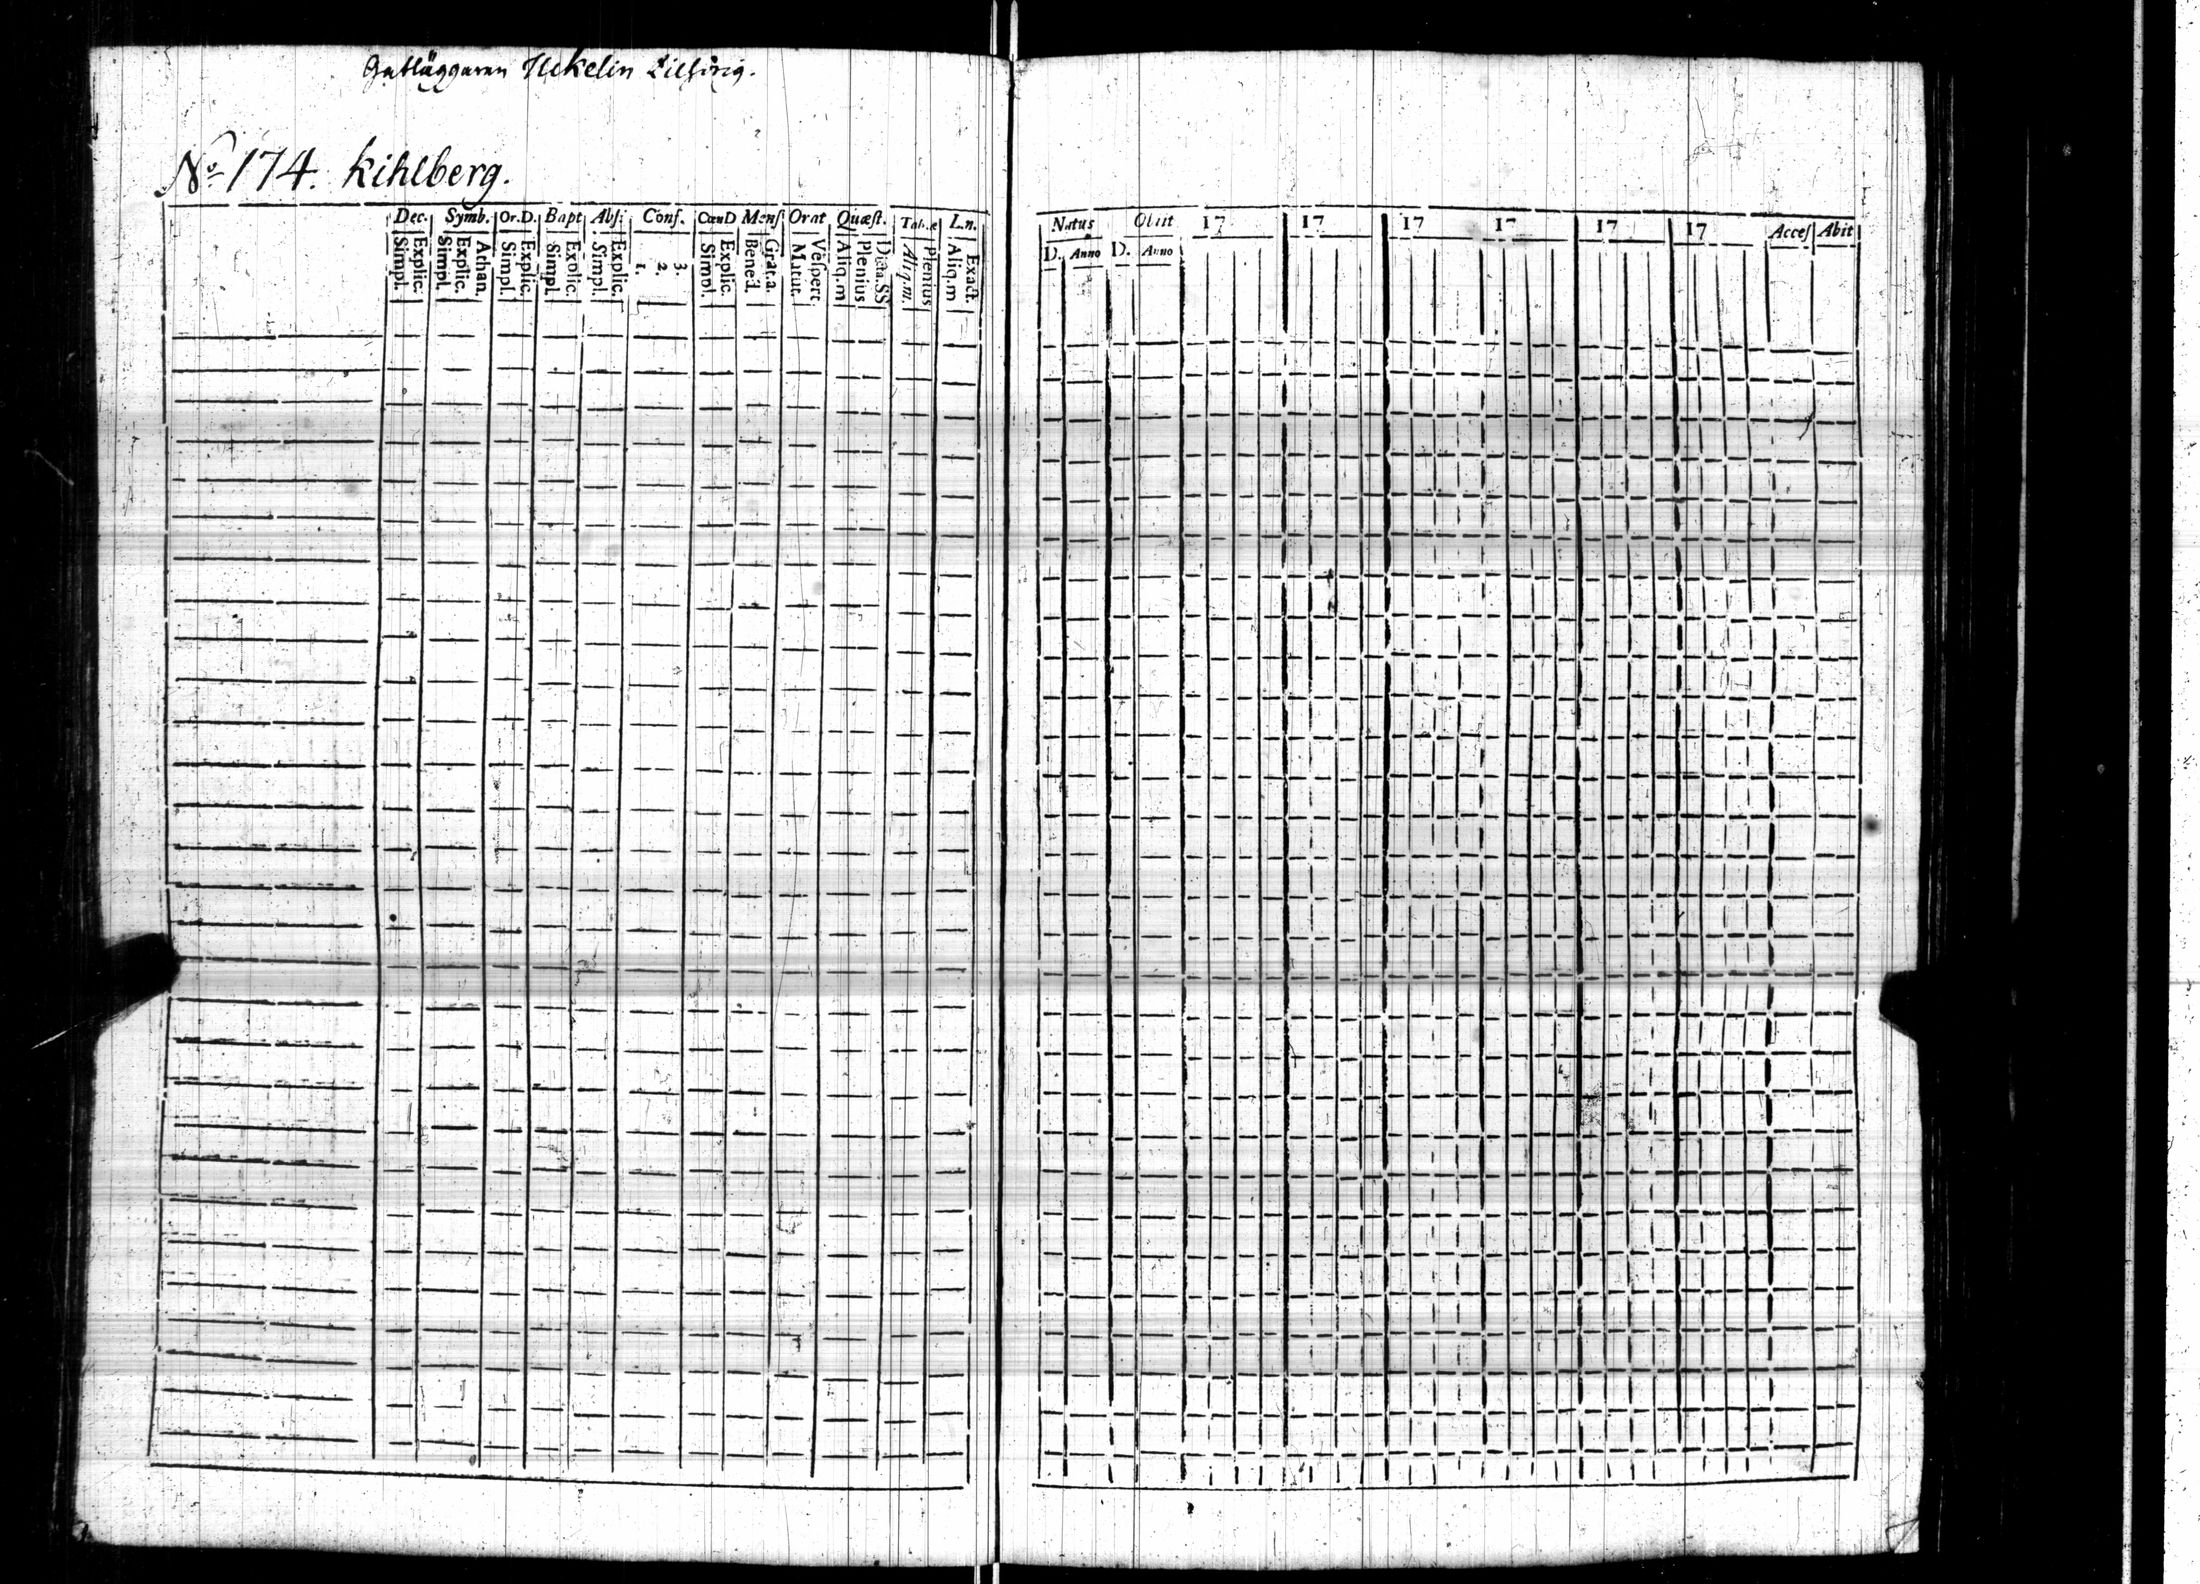 Gatläggaren
No. 174. Kihlberg.
Dec. Symb. Or.D. Bapt Abs: Conf. CœnD Mens Orat Quæst. Tab.æ L.n.
Simpl. Explic. Simpl. Explic. Athan. Simpl. Explic. Simpl. Explic. Simpl. Explic. 1. 2. 3. Simpl. Explic. Bened. Grat.a. Matut. Vespert. Aliq.m Plenius Dicta.SS Aliq.m. Plenius Aliq.m Exact.
Natus Obiit 17 17 17 17 17 17 Acces Abit
D. Anno D. Anno